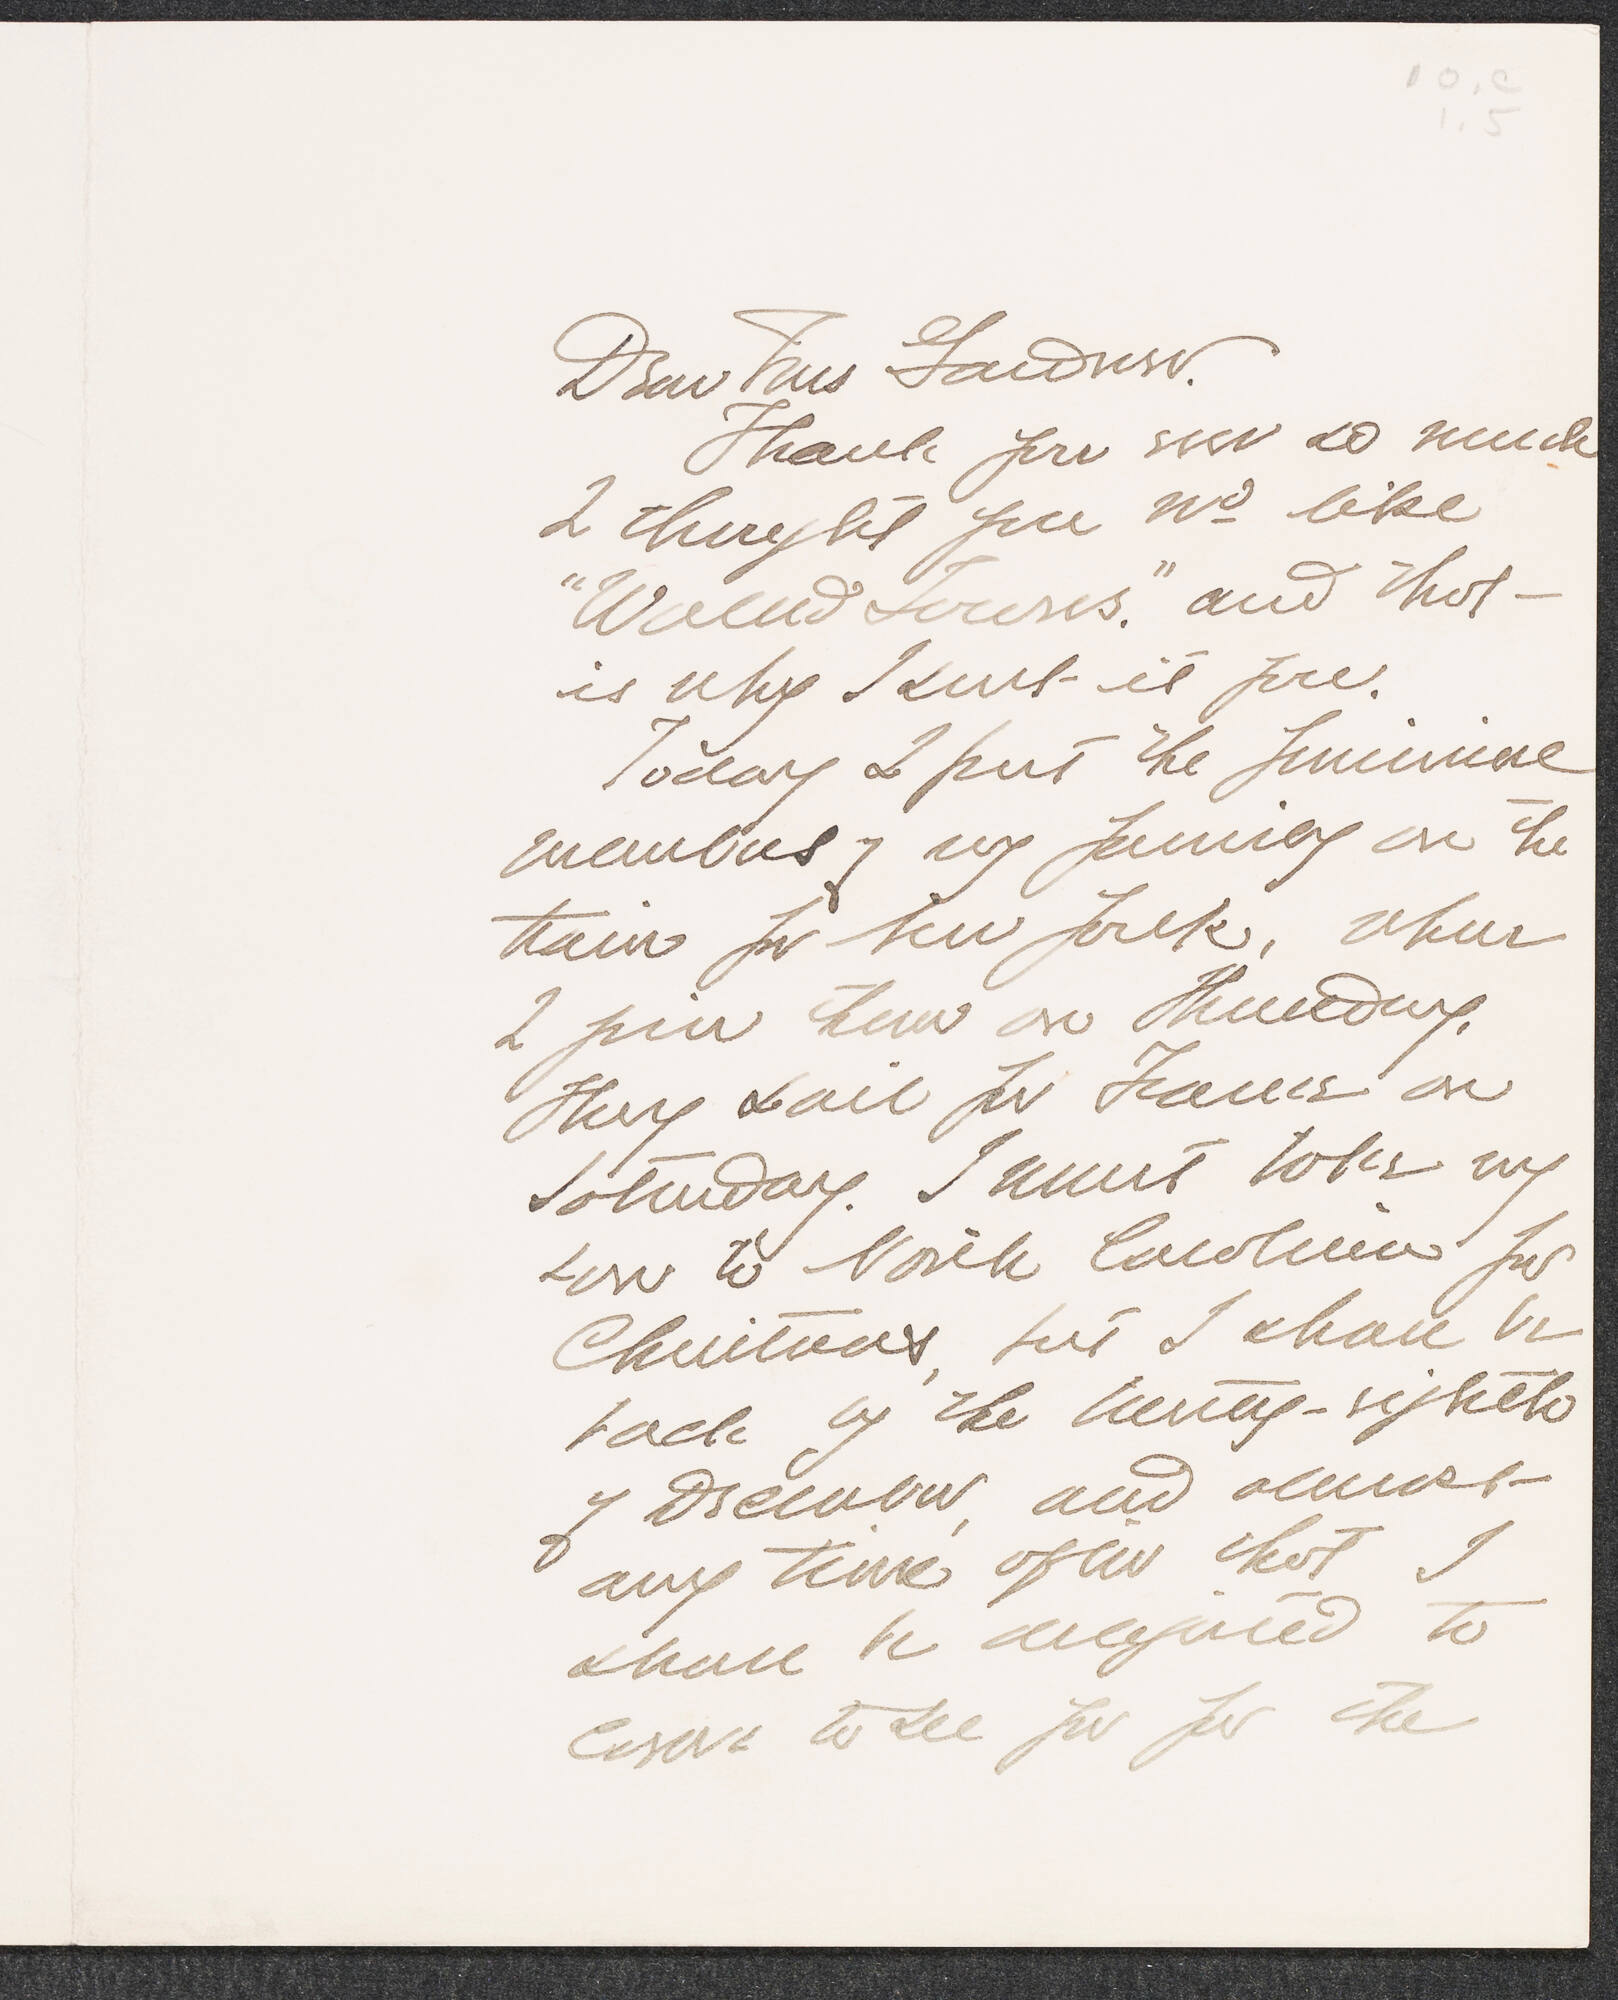 10.2
1.5
Dear Mrs Gardner.
Thank you ever so much
I thought you wd like
"Walled Towns." and that
is why I sent it you.
Today I put the feminine
members of my family on the
train for New York, where
I join them on Thursday.
They sail for France on
Saturday. I must take my
son to North Carolina for
Christmas, but I shall be
back by the twenty-eighth
of December, and almost
any time after that I
shall be delighted to
come to see you for the